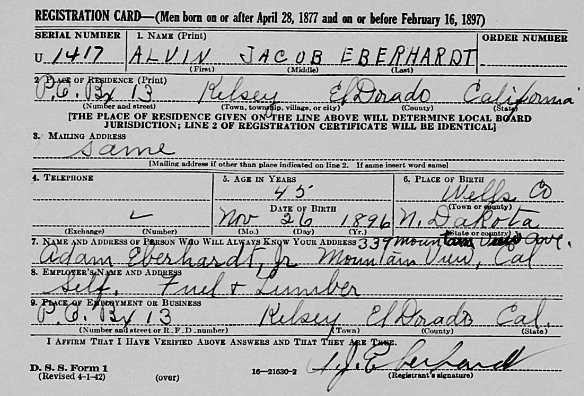 REGISTRATION CARD—(Men born on or after April 28, 1877 and on or before February 16, 1897)
SERIAL NUMBER 1. NAME (Print) ORDER NUMBER
U 1417 ALVIN JACOB EBERHARDT
(First) (Middle) (Last)
2. PLACE OF RESIDENCE (Print)
P.O. Bx 13 Kelsey El Dorado California
(Number and street) (Town, township, village, or city) (County) (State)
[THE PLACE OF RESIDENCE GIVEN ON THE LINE ABOVE WILL DETERMINE LOCAL BOARD
JURISDICTION; LINE 2 OF REGISTRATION CERTIFICATE WILL BE IDENTICAL]
3. MAILING ADDRESS
Same
[Mailing address if other than place indicated on line 2. If same insert word same]
4. TELEPHONE 5. AGE IN YEARS 6. PLACE OF BIRTH
45 Wells Co
DATE OF BIRTH (Town or county)
Nov 26 1896 N. Dakota
(Exchange) (Number) (Mo.) (Day) (Yr.) (State or country)
7. NAME AND ADDRESS OF PERSON WHO WILL ALWAYS KNOW YOUR ADDRESS 339 Mountain View Ave.
Adam Eberhardt, Jr Mountain View, Cal
8. EMPLOYER'S NAME AND ADDRESS
Self. Fuel + Lumber
9. PLACE OF EMPLOYMENT OR BUSINESS
P.O. Bx 13 Kelsey El Dorado Cal.
(Number and street or R. F. D. number) (Town) (County) (State)
I AFFIRM THAT I HAVE VERIFIED ABOVE ANSWERS AND THAT THEY ARE TRUE.
D. S. S. Form 1
(Revised 4-1-42) (over) 16—21630-2 J. Eberhardt
(Registrant's signature)